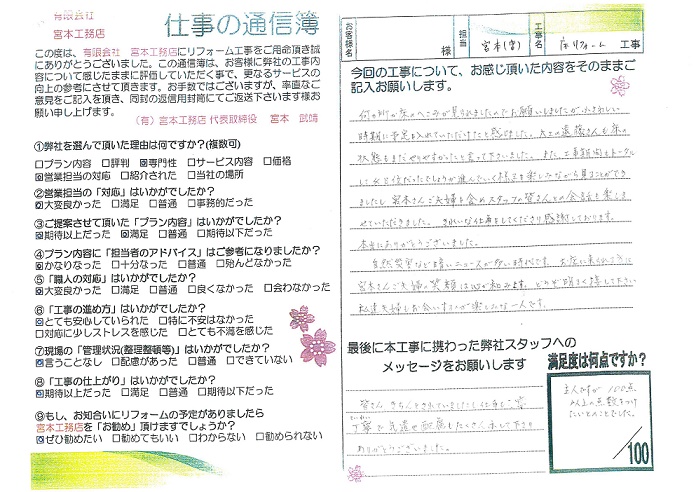 有限会社
宮本工務店
仕事の通信簿
この度は、有限会社 宮本工務店にリフォーム工事をご用命頂き誠
にありがとうございました。この通信簿は、お客様に弊社の工事内
容について感じたままに評価していただく事で、更なるサービスの
向上の参考にさせて頂きます。お手数ではございますが、率直なご
意見をご記入を頂き、同封の返信用封筒にてご返送下さいます様お
願い申し上げます。
(有)宮本工務店 代表取締役 宮本 武靖
①弊社を選んで頂いた理由は何ですか?(複数可)
□プラン内容 □評判 ☑専門性 □サービス内容 □価格
☑営業担当の対応 □紹介された □当社の場所
②営業担当の「対応」はいかがでしたか?
☑大変良かった □満足 □普通 □事務的だった
③ご提案させて頂いた「プラン内容」はいかがでしたか?
☑期待以上だった ☑満足 □普通 □期待以下だった
④プラン内容に「担当者のアドバイス」はご参考になりましたか?
☑かなりなった □十分なった □普通 □殆んどなかった
⑤「職人の対応」はいかがでしたか?
☑大変良かった □満足 □普通 □良くなかった □会わなかった
⑥「工事の進め方」はいかがでしたか?
☑とても安心していられた □特に不安はなかった
□対応に少しストレスを感じた □とても不満を感じた
⑦現場の「管理状況(整理整頓等)」はいかがでしたか?
☑言うことなし □配慮があった □普通 □できていない
⑧「工事の仕上がり」はいかがでしたか?
☑期待以上だった □満足 □普通 □期待以下だった
⑨もし、お知合いにリフォームの予定がありましたら
宮本工務店を「お勧め」頂けますでしょうか?
☑ぜひ勧めたい □勧めてもいい □わからない □勧められない
お客様名 様 担当 宮本(音) 工事名 床リフォーム 工事
今回の工事について、お感じ頂いた内容をそのままご
記入お願します。
時期に手を入れていただけたと感じました。大工の遠藤さんも床の
状態もまだやりやすかったと言って下さいました。また、工事期間もトータル
ました。宮本さんご夫婦を含めスタッフの皆さんとの会話も楽しま
せていただきました。きれいな仕事をしてくださり感謝しております。
本当にありがとうございました。
自然災害など暗いニュースが多い時代です。お店に来られた方に
宮本さんご夫婦の笑顔は心が和みます。どうか明るく接して下さい
私達夫婦もお会いするのが楽しみな一人です。
最後に本工事に携わった弊社スタッフへの
メッセージをお願いします
丁寧で気遣や配慮もたくさんして下さり
ありがとうございました。
満足度は何点ですか?
主人ですが100点
以上の点数をつけ
たいとのことでした。
/100